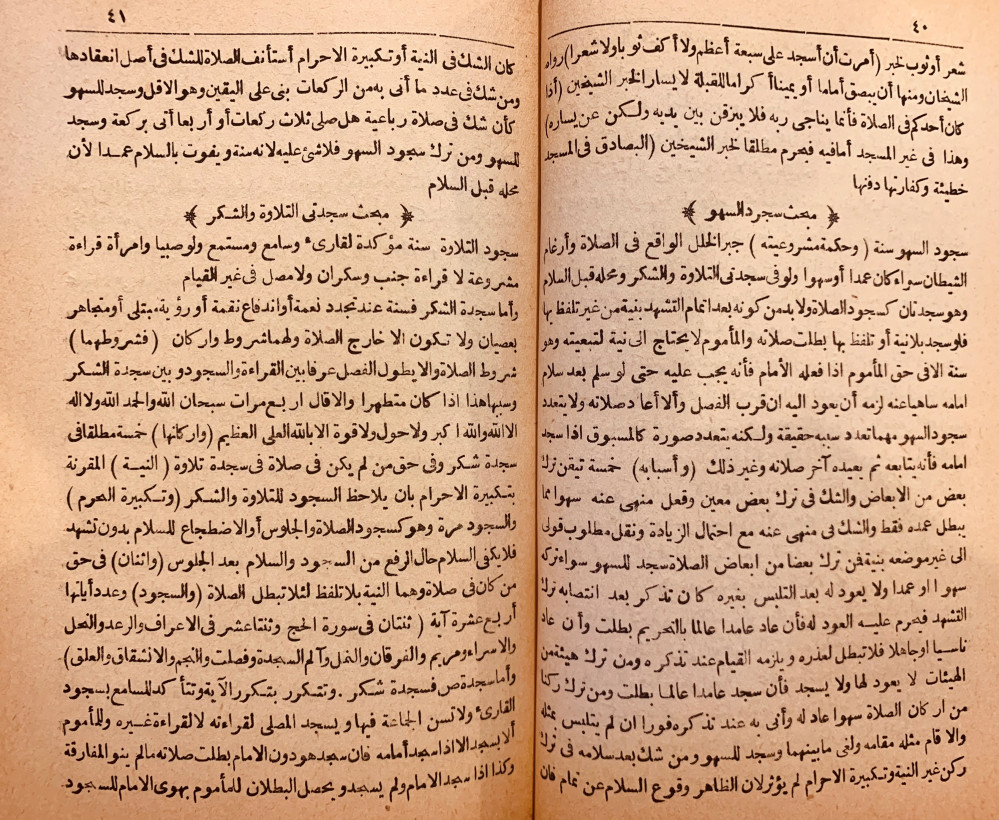 ٤٠
شعر أو ثوب لخبر (أمرت أن أسجد على سبعة أعظم ولا أكف ثوبا ولا شعرا) رواه
الشيخان ومنها أن يبصق أماما أو يمينا أكراما للقبلة لا يسار الخبر الشيخين (أذا
كان أحدكم فى الصلاة فأنما يناجى ربه فلا يبزقن بين يديه ولكن عن يساره)
وهذا فى غير المسجد أما فيه فيحرم مطلقا لخبر الشيخين (البصاق فى المسجد
خطيئة وكفارتها دفنها
﴿ مبحث سجرد السهو ﴾
سجود السهو سنة (وحكمة مشروعيته) جبر الخلل الواقع فى الصلاة وأرغام
الشيطان سواء كان عمدا أو سهوا ولو فى سجدتى التلاوة والشكر ومحله قبل السلام
وهو سجدتان كسجود الصلاة ولا بد من كونه بعد اتمام التشهد بنية من غير تلفظ بها
فلو سجد بلا نية أو تلفظ بها بطلت صلاته والمأموم لا يحتاج الى نية لتبعيته وهو
سنة الا فى حق المأموم اذا فعله الأمام فأنه يجب عليه حتى لو سلم بعد سلام
امامه ساهيا عنه لزمه أن يعود اليه ان قرب الفصل وألا أعاد صلاته ولا يتعدد
سجود السهو مهما تعدد سببه حقيقة ولكنه يتعدد صورة كالمسبوق اذا سجد
امامه فأنه يتابعه ثم يعيده آخر صلاته وغير ذلك (وأسبابه) خمسة تيقن ترك
بعض من الابعاض والشك فى ترك بعض معين وفعل منهى عنه سهوا مما
يبطل عمده فقط والشك فى منهى عنه مع احتمال الزيادة ونقل مطلوب قولى
الى غير موضعه بنية فمن ترك بعضا من ابعاض الصلاة سجد للسهو سواء تركه
سهوا او عمدا ولا يعود له بعد التلبس بغيره كان تذكر بعد انتصابه ترك
التشهد فيحرم عليه العود له فأن عاد عامدا عالما بالتحريم بطلت وأن عاد
ناسيا اوجاهلا فلا تبطل لعذره ويلزمه القيام عند تذكره ومن ترك هيئة من
الهيئات لا يعود لها ولا يسجد فأن سجد عامدا عالما بطلت ومن ترك ركنا
من اركان الصلاة سهوا عاد له وأتى به عند تذكره فورا ان لم يتلبس بمثله
والا قام مثله مقامه ولغى مابينهما وسجد للسهو ومن شك بعد سلامه فى ترك
ركن غير النية وتكبيرة الاحرام لم يؤثر لان الظاهر وقوع السلام عن تمام فان
٤١
كان الشك فى النية أو تكبيرة الاحرام أستأنف الصلاة للشك فى أصل انعقادها
ومن شك فى عدد ما أتى به من الركعات بنى على اليقين وهو الاقل وسجد للسهو
كأن شك فى صلاة رباعية هل صلى ثلاث ركعات أو أربعا أتى بركعة وسجد
للسهو ومن ترك سجود السهو فلا شئ عليه لانه سنة ويفوت بالسلام عمدا لأن
محله قبل السلام
﴿ مبحث سجدتى التلاوة والشكر ﴾
سجود التلاوة سنة مؤكدة لقارىء وسامع ومستمع ولو صبيا وامرأة قراءة
مشروعة لا قراءة جنب وسكران ولا مصل فى غير القيام
وأما سجدة الشكر فسنة عند تجدد نعمة أو اندفاع نقمة أو رؤية مبتلى أو متجاهر
بعصيان ولا تكون الا خارج الصلاة ولهما شروط واركان (فشروطهما)
شروط الصلاة والا يطول الفصل عرفا بين القراءة والسجود و بين سجدة الشكر
وسببها هذا اذا كان متطهرا والا قال اربع مرات سبحان الله والحمد الله ولا اله
الا الله والله اكبر ولا حول ولا قوة الا بالله العلى العظيم (واركانها) خمسة مطلقا فى
سجدة شكر وفى حق من لم يكن فى صلاة فى سجدة تلاوة (النيـة) المقرنة
بتكبيرة الاحرام بان يلاحظ السجود للتلاوة والشكر (وتكبيرة التحرم)
والسجود مرة وهو كسجود الصلاة والجلوس أو الاضطجاع للسلام بدون تشهد
فلا يكفى السلام حال الرفع من السجود والسلام بعد الجلوس (واثنتان) فى حق
من كان فى صلاة وهما النية بلا تلفظ لئلا تبطل الصلاة (والسجود) وعدد أياتها
أربع عشرة آية (ثنتان فى سورة الحج وثنتا عشر فى الاعراف والرعد والنحل
والاسراء ومريم والفرقان والنمل وألم السجدة وفصلت والنجم والانشقاق والعلق)
وأما سجدة ص فسجدة شكر . وتتكرر بتكرر الآية وتتأكد للسامع بسجود
القارىء ولا تسن الجماعة فيها ويسجد المصلى لقراءته لا لقراءة غيره وللمأموم
ألا يسجد الا اذا سجد أمامه فان سجد هو دون الامام بطلت صلاته ما لم ينو المفارقة
وكذا اذا سجد الامام ولم يسجد ويحصل البطلان للمأموم بهوى الامام للسجود